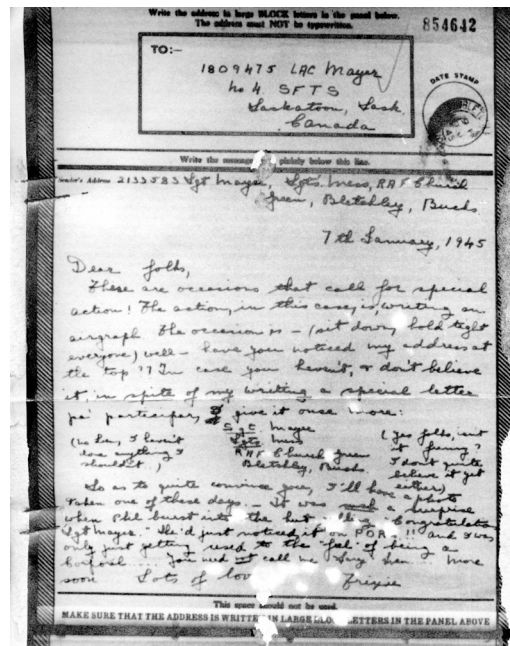 Write the address in large BLOCK letters in the panel below.
The address must NOT be typewritten.
854642
TO:—
1809475 LAC Mayer
No 4. SFTS
Saskatoon, Sask.
Canada
DATE STAMP
Write the message plainly below this line.
Sender's Address 2133583 Sgt Mayer, Sgts. Mess, RAF Church
Green, Bletchley, Bucks
7th January, 1945
Dear folks,
These are occasions that call for special
action! The action, in this case, is writing an
airgraph. The occasion is – (sit down, hold tight
everyone) well – have you noticed my address at
the top?? In case you haven't, or don't believe
it, in spite of my writing a special letter
pa' participer, I give it once more:
Sgt. Mayer
Sgts Mess
RAF Church Green
Bletchley, Bucks.
(no Les, I haven't
lose anything I
shouldn't.)
(Yes folks, isn't
it funny?
I don't quite
believe it yet
either)
So as to quite convince you, I'll have a photo
taken one of these days. – It was such a surprise
when Phil burst into the hut Congratulations
Sgt Mayer." He'd just noticed it on POR's!! and I was
only just getting used to the "feel" of being a
Corporal... You need call me "Sarg" then. More
soon Lots of love
This space should not be used.
MAKE SURE THAT THE ADDRESS IS WRITTEN IN LARGE BLOCK LETTERS IN THE PANEL ABOVE